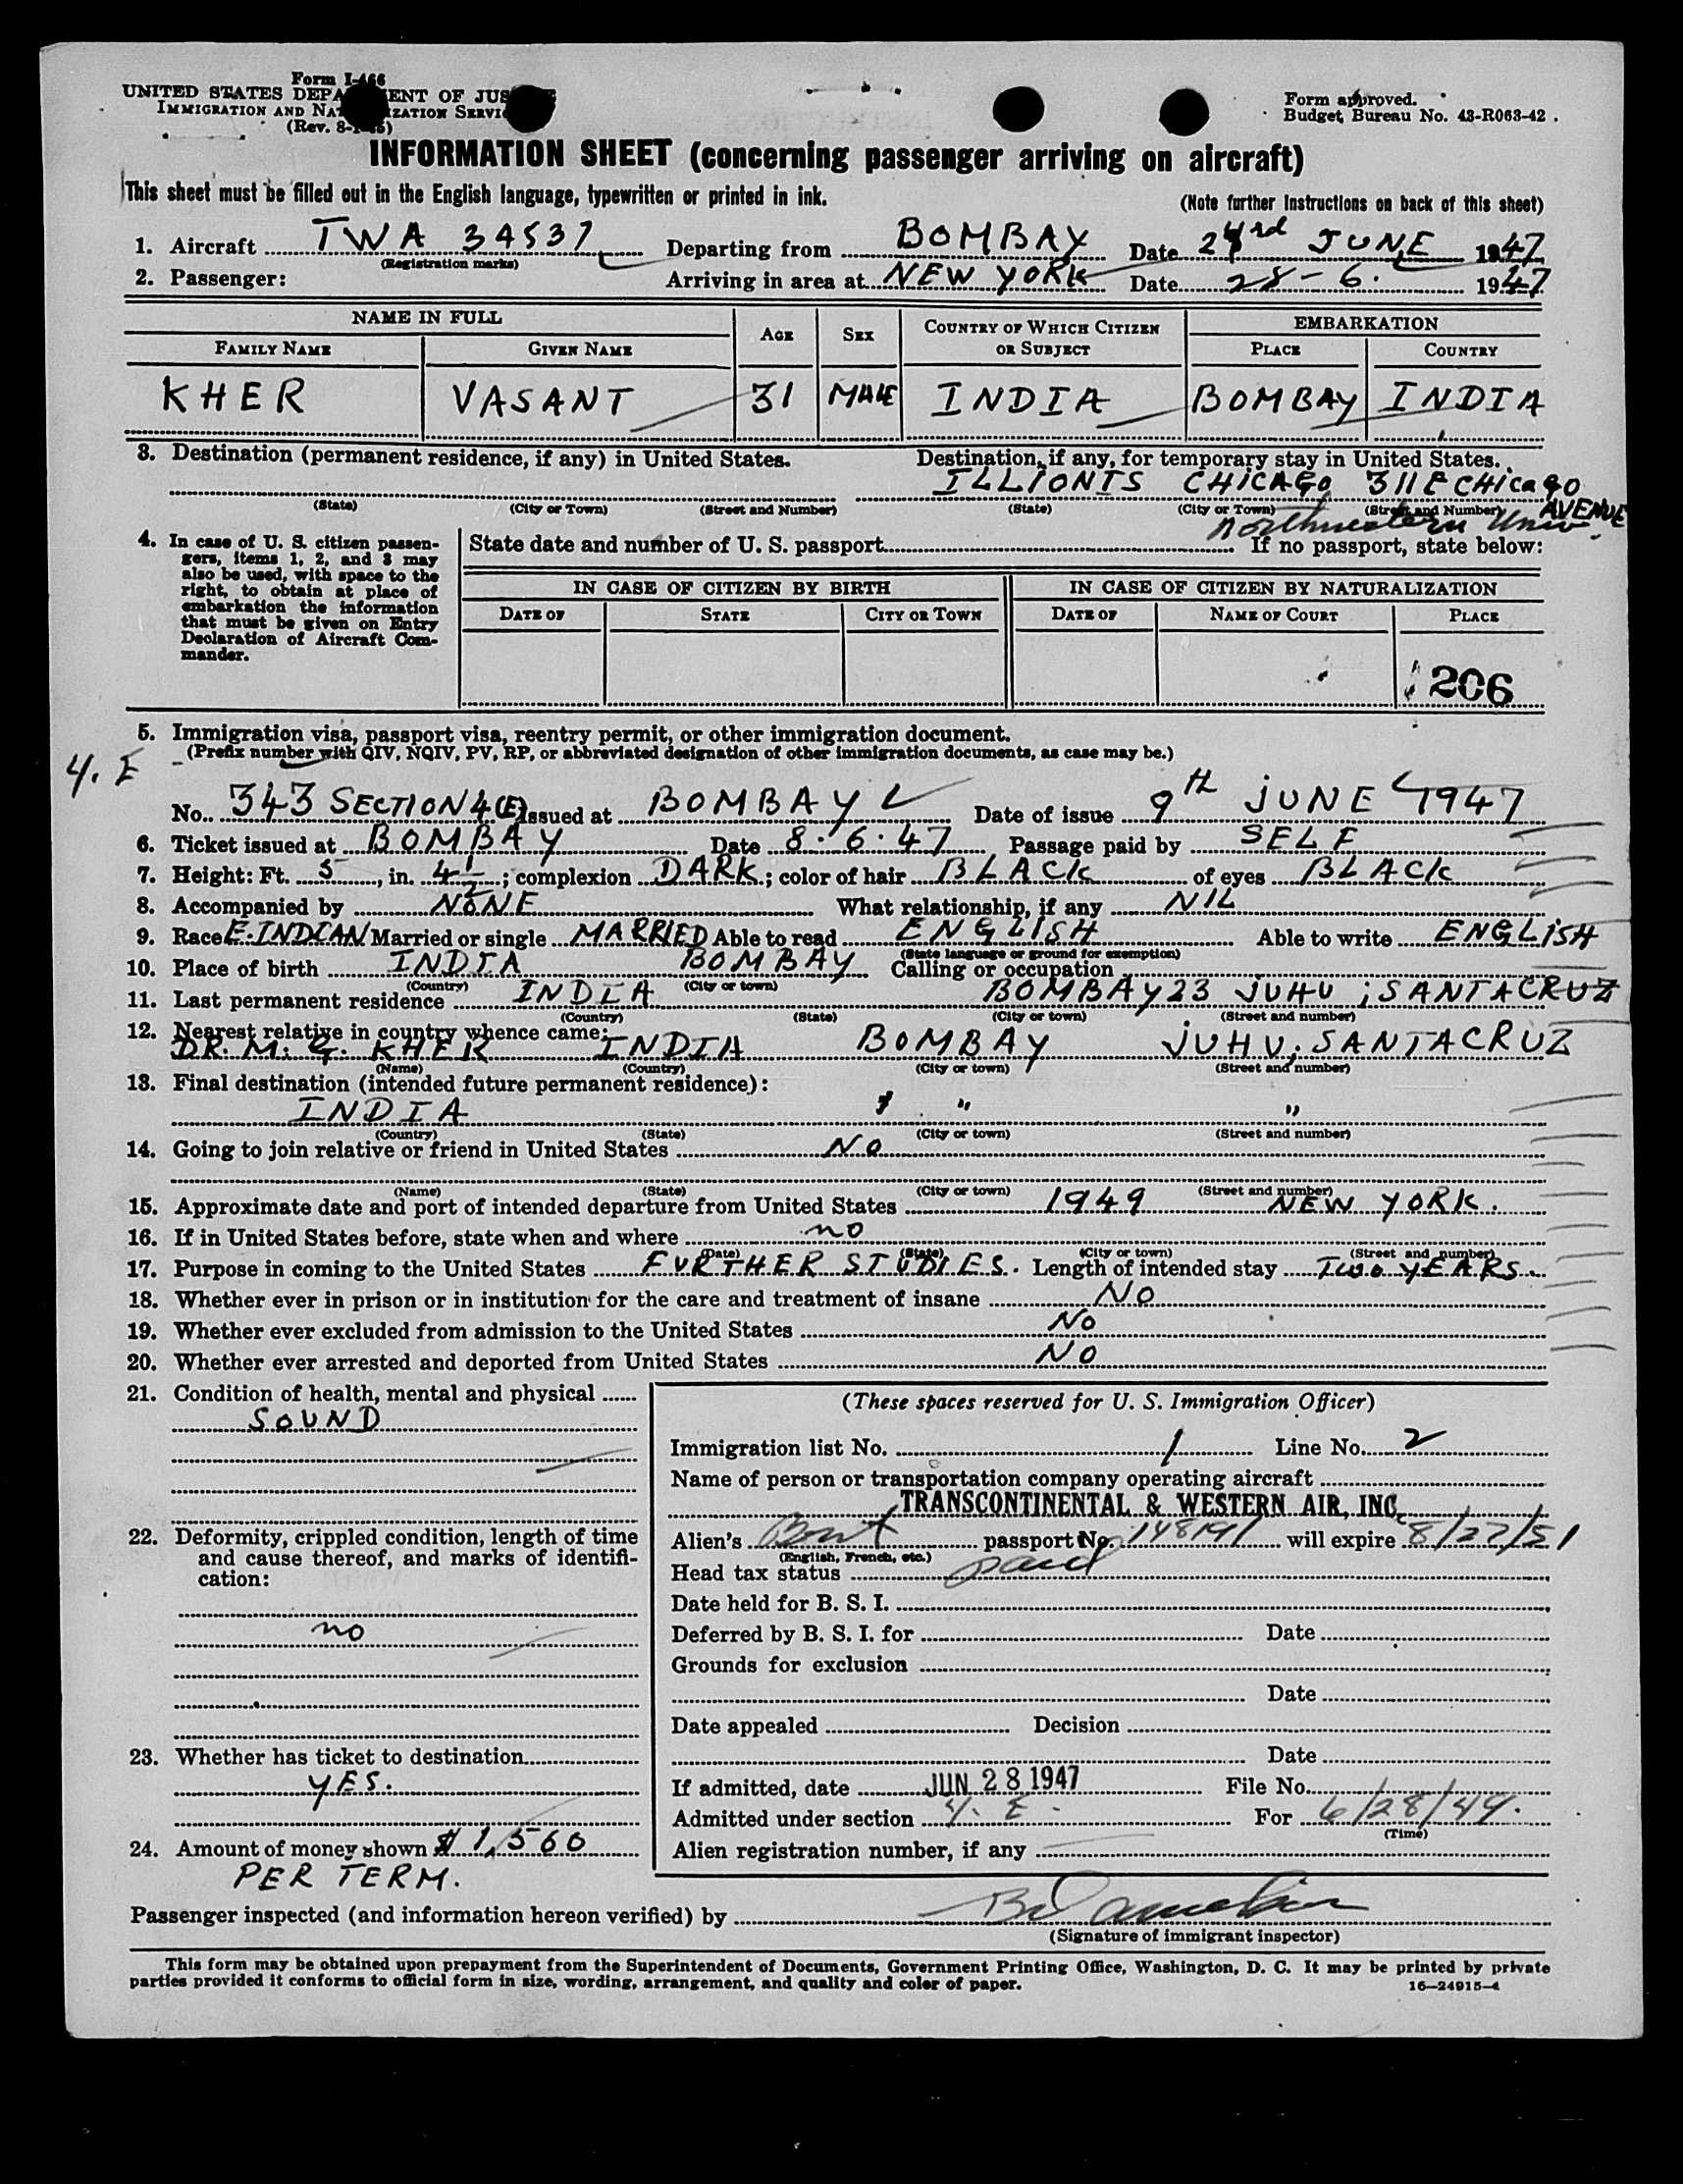 Form I-466
UNITED STATES DEPARTMENT OF JUSTICE
IMMIGRATION AND NATURALIZATION SERVICE
(Rev. 8-1-45)
Form approved.
Budget Bureau No. 43-R063-42 .
INFORMATION SHEET (concerning passenger arriving on aircraft)
This sheet must be filled out in the English language, typewritten or printed in ink.
(Note further instructions on back of this sheet)
1. Aircraft TWA 34537 Departing from BOMBAY Date JUNE 1947
(Registration marks)
2. Passenger: Arriving in area at NEW YORK Date 28-6. 1947
NAME IN FULL AGE SEX COUNTRY OF WHICH CITIZEN OR SUBJECT EMBARKATION
FAMILY NAME GIVEN NAME PLACE COUNTRY
KHER VASANT 31 MALE INDIA BOMBAY INDIA
3. Destination (permanent residence, if any) in United States. Destination, if any, for temporary stay in United States.
ILLIONIS CHICAGO 311 E CHICAGO AVENUE
(State) (City or Town) (Street and Number) (State) (City or Town) (Street and Number)
Northwestern Univ.
4. In case of U. S. citizen passengers, items 1, 2, and 3 may also be used, with space to the right, to obtain at place of embarkation the information that must be given on Entry Declaration of Aircraft Commander.
State date and number of U. S. passport If no passport, state below:
IN CASE OF CITIZEN BY BIRTH IN CASE OF CITIZEN BY NATURALIZATION
DATE OF STATE CITY OR TOWN DATE OF NAME OF COURT PLACE
206
5. Immigration visa, passport visa, reentry permit, or other immigration document.
(Prefix number with QIV, NQIV, PV, RP, or abbreviated designation of other immigration documents, as case may be.)
4. E
No. 343 SECTION 4(E) Issued at BOMBAY Date of issue 9th JUNE 1947
6. Ticket issued at BOMBAY Date 8.6.47 Passage paid by SELF
7. Height: Ft. 5, in. 4 1/2; complexion DARK; color of hair BLACK of eyes BLACK
8. Accompanied by NONE What relationship, if any NIL
9. Race E.INDIAN Married or single MARRIED Able to read ENGLISH Able to write ENGLISH
(State language or ground for exemption)
10. Place of birth INDIA BOMBAY Calling or occupation
(Country) (City or town)
11. Last permanent residence INDIA BOMBAY 23 JUHU ; SANTACRUZ
(Country) (State) (City or town) (Street and number)
12. Nearest relative in country whence came:
DR. M. G. KHER INDIA BOMBAY JUHU; SANTACRUZ
(Name) (Country) (City or town) (Street and number)
13. Final destination (intended future permanent residence):
INDIA " "
(Country) (State) (City or town) (Street and number)
14. Going to join relative or friend in United States NO
(Name) (State) (City or town) (Street and number)
15. Approximate date and port of intended departure from United States 1949 NEW YORK.
16. If in United States before, state when and where no
(Date) (State) (City or town) (Street and number)
17. Purpose in coming to the United States FURTHER STUDIES. Length of intended stay Two YEARS.
18. Whether ever in prison or in institution for the care and treatment of insane NO
19. Whether ever excluded from admission to the United States No
20. Whether ever arrested and deported from United States NO
21. Condition of health, mental and physical
SOUND
22. Deformity, crippled condition, length of time and cause thereof, and marks of identification:
no
23. Whether has ticket to destination
YES.
24. Amount of money shown $ 1,560
PER TERM.
(These spaces reserved for U. S. Immigration Officer)
Immigration list No. 1 Line No. 2
Name of person or transportation company operating aircraft
TRANSCONTINENTAL & WESTERN AIR, INC.
Alien's Brit passport No. 148191 will expire 8/27/51
(English, French, etc.)
Head tax status paid
Date held for B. S. I.
Deferred by B. S. I. for Date
Grounds for exclusion
Date
Date appealed Decision
Date
If admitted, date JUN 28 1947 File No.
Admitted under section 4. E. For 6/28/49.
(Time)
Alien registration number, if any
Passenger inspected (and information hereon verified) by
(Signature of immigrant inspector)
This form may be obtained upon prepayment from the Superintendent of Documents, Government Printing Office, Washington, D. C. It may be printed by private
parties provided it conforms to official form in size, wording, arrangement, and quality and color of paper.
16—24915-4